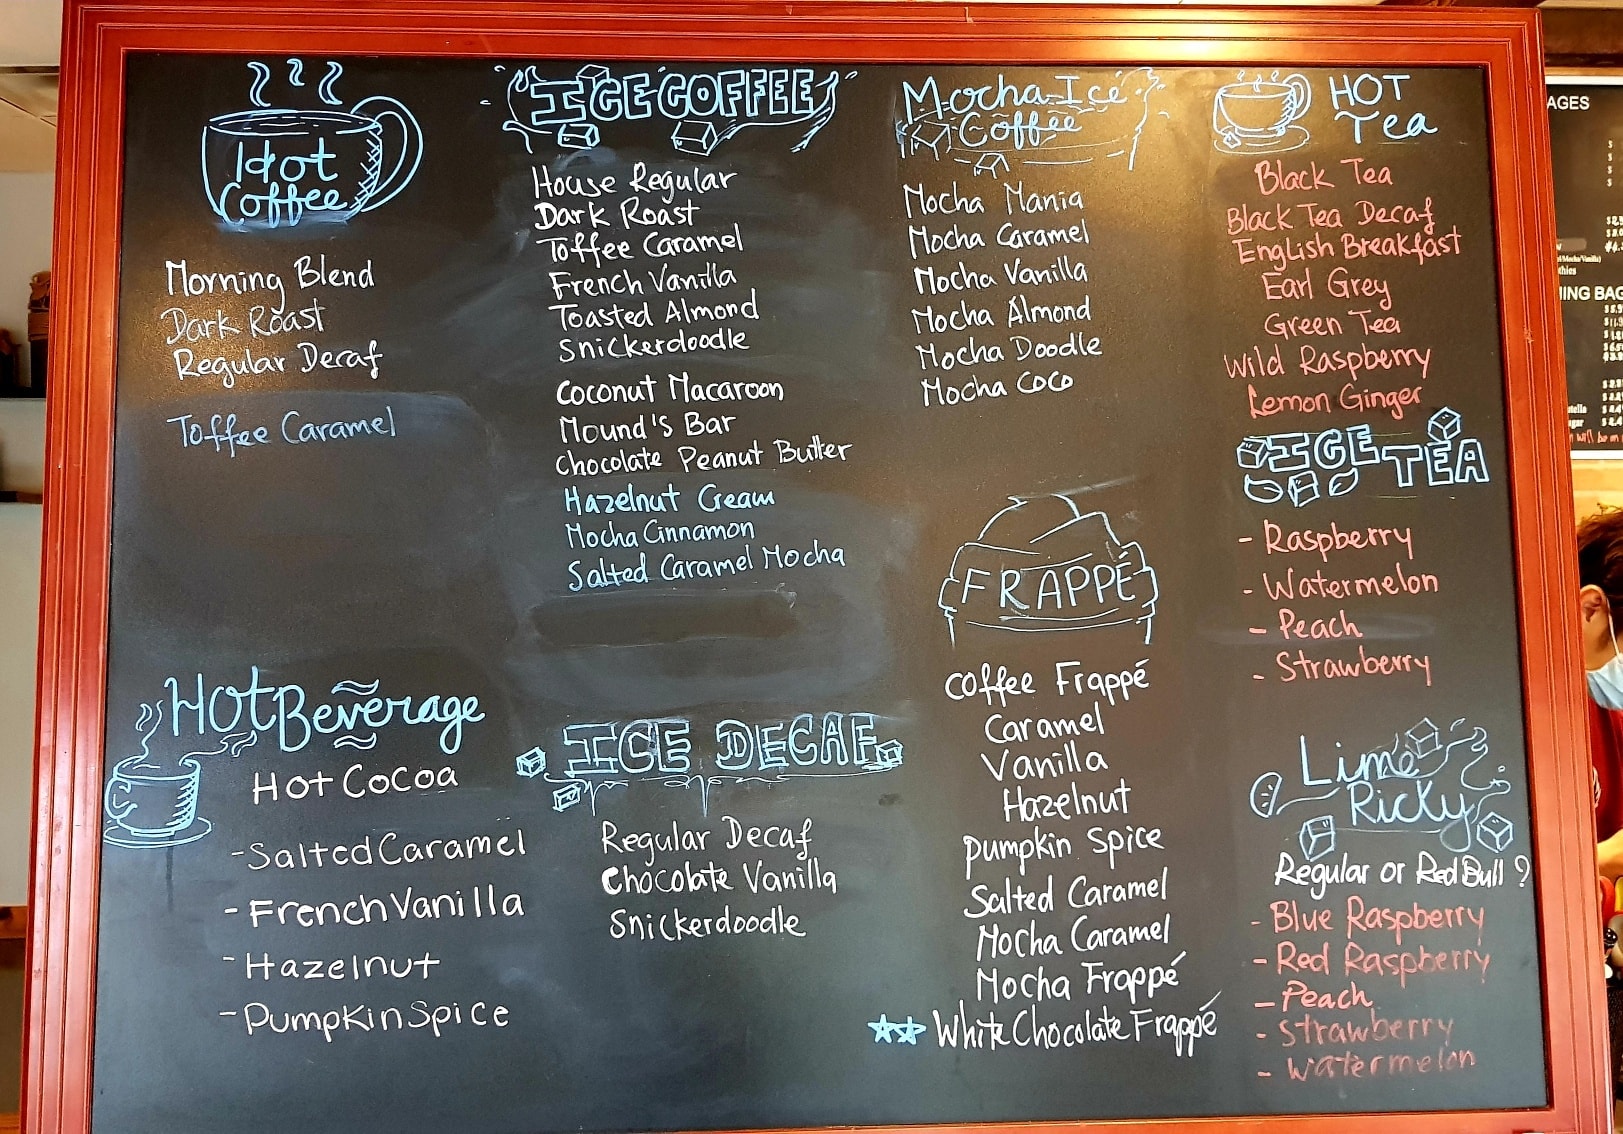 Hot
Coffee
Morning Blend
Dark Roast
Regular Decaf
Toffee Caramel
Hot Beverage
Hot Cocoa
- Salted Caramel
- French Vanilla
- Hazelnut
- Pumpkin Spice
ICE COFFEE
House Regular
Dark Roast
Toffee Caramel
French Vanilla
Toasted Almond
Snickerdoodle
Coconut Macaroon
Mound's Bar
Chocolate Peanut Butter
Hazelnut Cream
Mocha Cinnamon
Salted Caramel Mocha
ICE DECAF
Regular Decaf
Chocolate Vanilla
Snickerdoodle
Mocha Ice
Coffee
Mocha Mania
Mocha Caramel
Mocha Vanilla
Mocha Almond
Mocha Doodle
Mocha Coco
FRAPPÉ
Coffee Frappé
Caramel
Vanilla
Hazelnut
Pumpkin Spice
Salted Caramel
Mocha Caramel
Mocha Frappé
White Chocolate Frappé
HOT
Tea
Black Tea
Black Tea Decaf
English Breakfast
Earl Grey
Green Tea
Wild Raspberry
Lemon Ginger
ICE TEA
- Raspberry
- Watermelon
- Peach
- Strawberry
Lime
Ricky
Regular or Red Bull ?
- Blue Raspberry
- Red Raspberry
- Peach
- Strawberry
- Watermelon